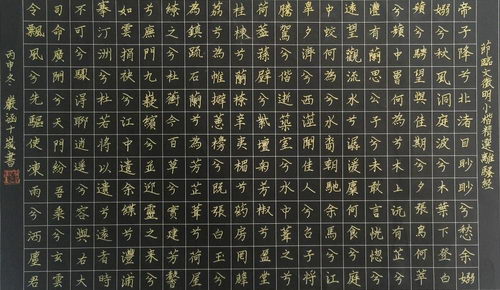 節臨文徵明小楷精選離騷經
帝子降兮北渚目眇眇兮愁余嫋
嫋兮秋風洞庭波兮木葉下登白
蘋兮騁望與佳期兮夕張鳥萃兮
蘋中罾何為兮木上沅有芷兮
澧有蘭思公子兮未敢言慌惚兮
遠望觀流水兮潺湲麋何食兮庭
中蛟何為兮水裔朝馳余馬兮江
皋夕濟兮西澨聞佳人兮召予將
騰駕兮偕逝築室兮水中葺之兮
荷蓋蓀壁兮紫壇播芳椒兮成堂
桂棟兮蘭橑辛夷楣兮藥房罔薜
荔兮為帷擗蕙櫋兮既張白玉兮
為鎮疏石蘭兮為芳芷葺兮荷屋
繚之兮杜衡合百草兮實庭建芳
馨兮廡門九嶷繽兮並迎靈之來
兮如雲捐余袂兮江中遺余褋兮
澧浦搴汀洲兮杜若將以遺兮遠者
時不可兮驟得聊逍遙兮容與大
司命廣開兮天門紛吾乘兮玄雲
令飄風兮先驅使凍雨兮灑塵君
丙申冬 嚴涵十歲書